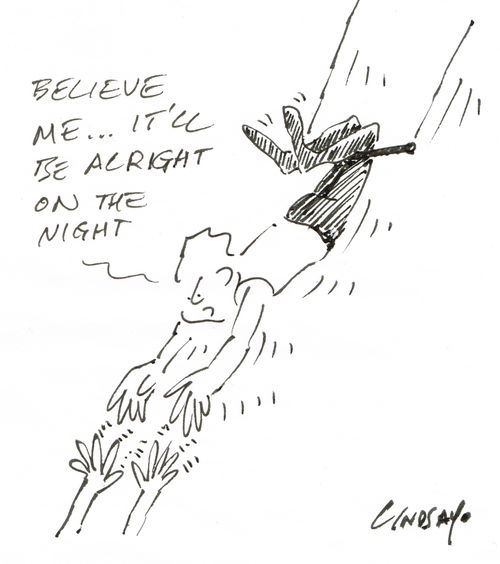 BELIEVE
ME... IT'LL
BE ALRIGHT
ON THE
NIGHT
LINDSAY.